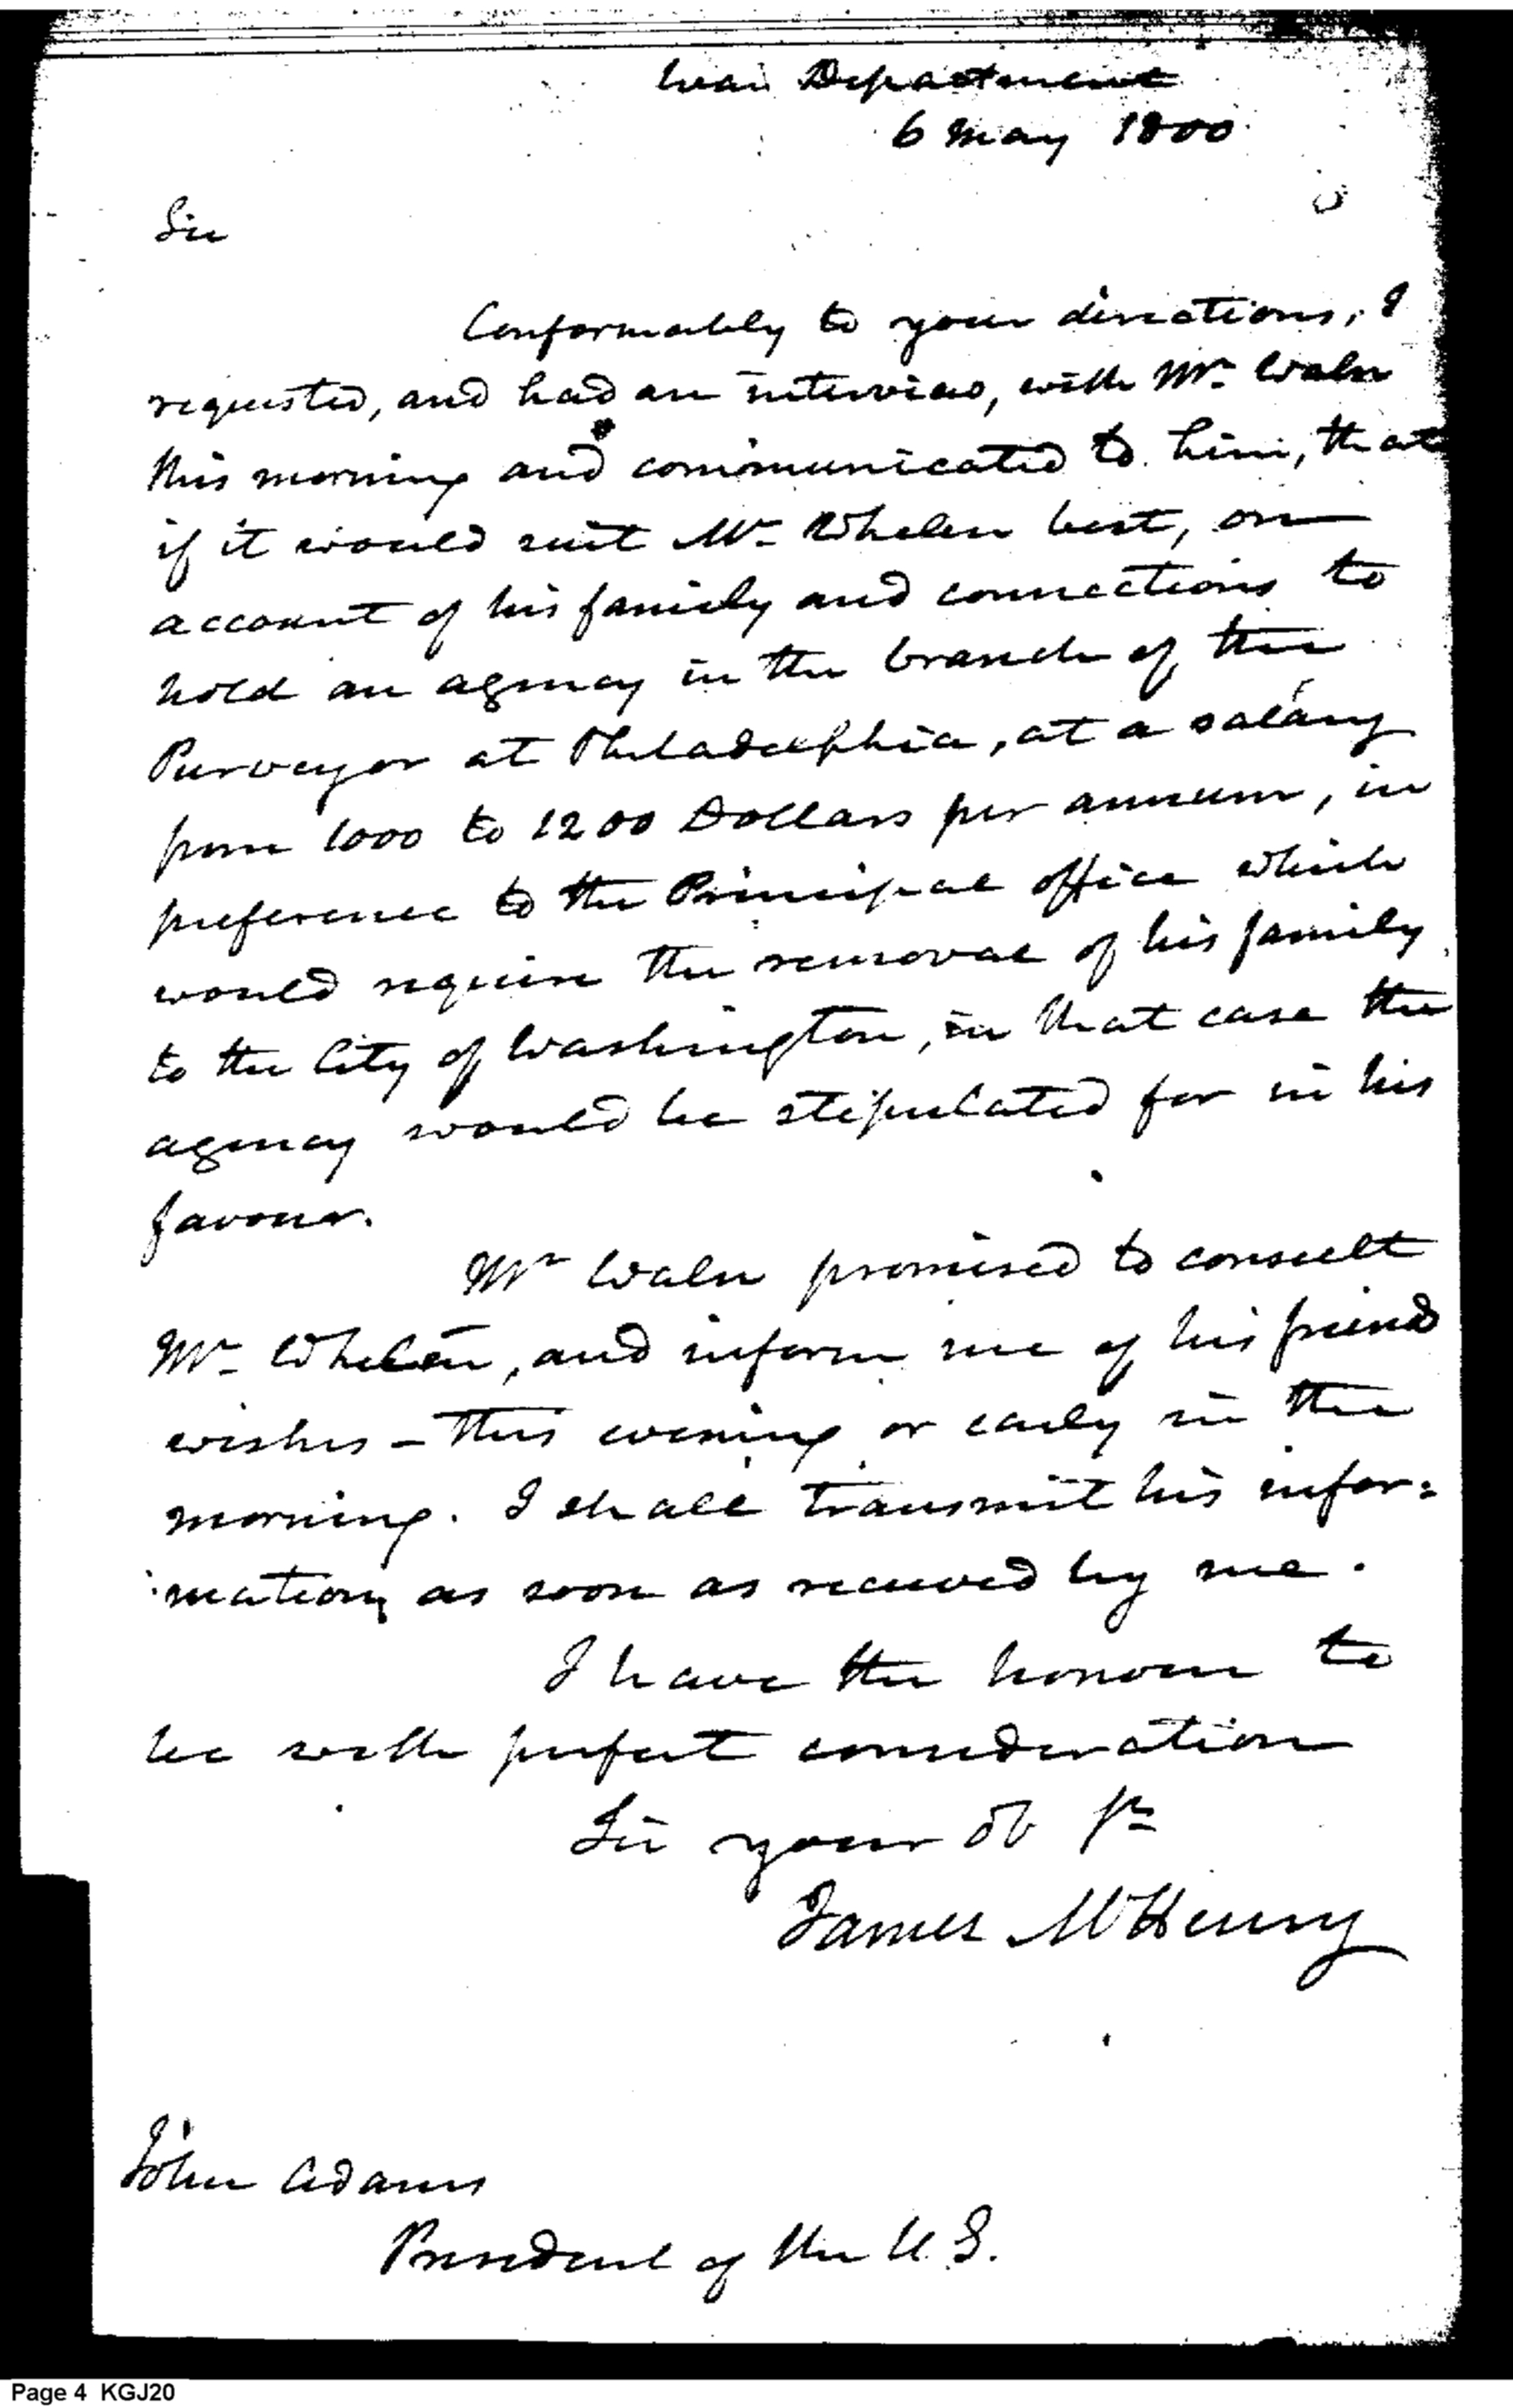 War Department
6 May 1800
Sir
Conformably to your directions, I
requested, and had an interview, with Mr. Waln
this morning and communicated to him, that
if it would suit Mr. Whelen best, on
account of his family and connections to
hold an agency in the branch of the
Purveyor at Philadelphia, at a salary
from 1000 to 1200 Dollars per annum, in
preference to the Principal office which
would require the removal of his family
to the City of Washington, in that case the
agency would be stipulated for in his
favour.
Mr Waln promised to consult
Mr. Whelen, and inform me of his friend
wishes – this evening or early in the
morning. I shall transmit his infor:
:mation, as soon as received by me.
I have the honour to
be with perfect consideration
Sir your ob St
James McHenry
John Adams
President of the U.S.
Page 4 KGJ20